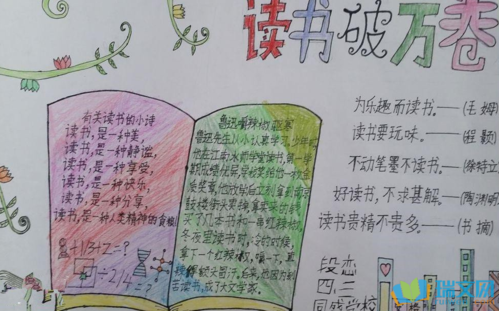 读书破万卷
有关读书的小诗
读书,是一种美,
读书,是一种静谧,
读书,是一种享受,
读书,是一种快乐,
读书,是一种分享,
读书,是一种人类精神的食粮!
+1/3+2=?
÷2/2
=?
鲁迅嚼辣椒驱寒
鲁迅先生从小认真学习。少年时,
在江南水师学堂读书,第一学
期成绩优异,学校奖给他一枚金
质奖章。他立刻拿到南京
鼓楼街头卖掉,然后
买了几本书和一串红辣椒。
冬夜里读书时,冷的时候,
拿下一个红辣椒,嚼一下,直
辣得额头冒汗。
苦读书,成了大文学家。
为乐趣而读书。——(毛姆)
读书要玩味。——(程颢)
不动笔墨不读书。——(徐特立)
好读书,不求甚解。——(陶渊明)
读书贵精不贵多。——(书摘)
段恋
四、三
同盛学校
瑞文网